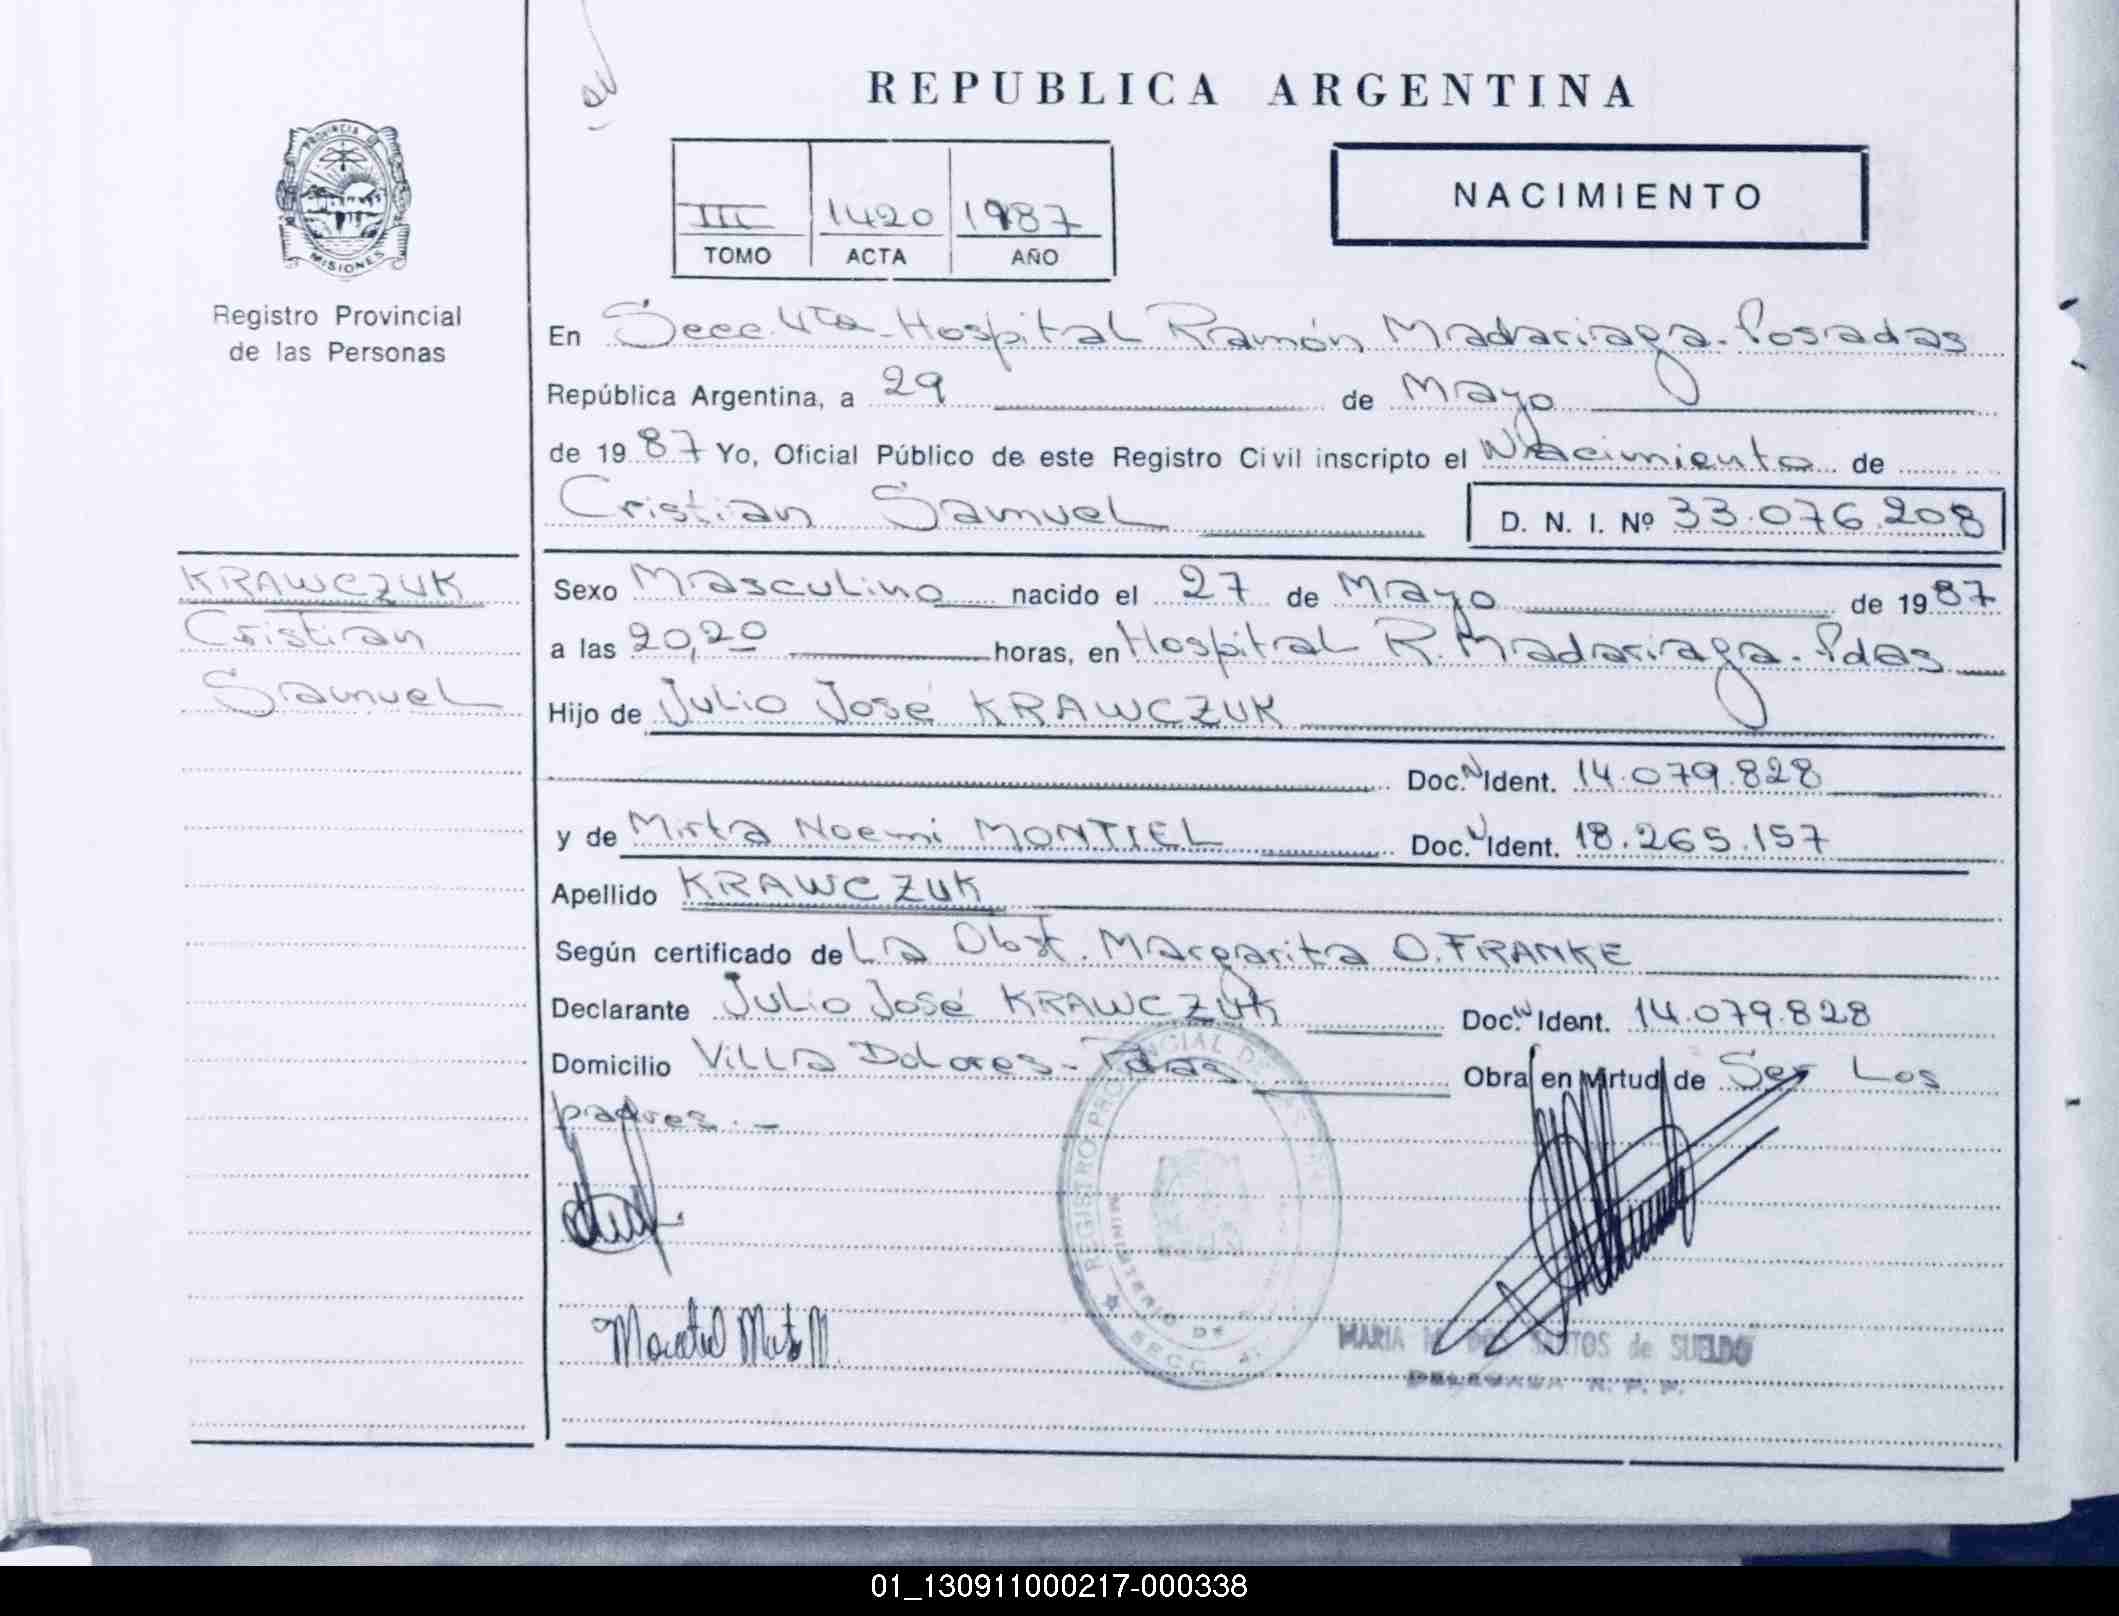 REPUBLICA ARGENTINA
PROVINCIA DE
MISIONES
Registro Provincial
de las Personas
III 1420 1987
TOMO ACTA AÑO
NACIMIENTO
En Secc. 4ta - Hospital Ramón Madariaga - Posadas
República Argentina, a 29 de Mayo
de 1987 Yo, Oficial Público de este Registro Civil inscripto el Nacimiento de
Cristian Samuel D. N. I. Nº 33.076.208
KRAWCZUK
Cristian
Samuel
Sexo Masculino nacido el 27 de Mayo de 1987
a las 20,20 horas, en Hospital R. Madariaga - Pdas
Hijo de Julio José KRAWCZUK
Doc. N Ident. 14.079.828
y de Mirta Noemi MONTIEL Doc. N Ident. 18.265.157
Apellido KRAWCZUK
Según certificado de La Obst. Margarita O. FRANKE
Declarante Julio José KRAWCZUK Doc. N Ident. 14.079.828
Domicilio Villa Dolores - Pdas Obra en virtud de Ser Los
padres. -
REGISTRO PROVINCIAL DE LAS
MINISTERIO DE
SECC. 4
Montiel Mirta N
MARIA SANTOS de SUELDO
DELEGADA R. P. P.
01_130911000217-000338